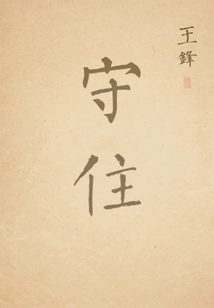 守住
王鋒